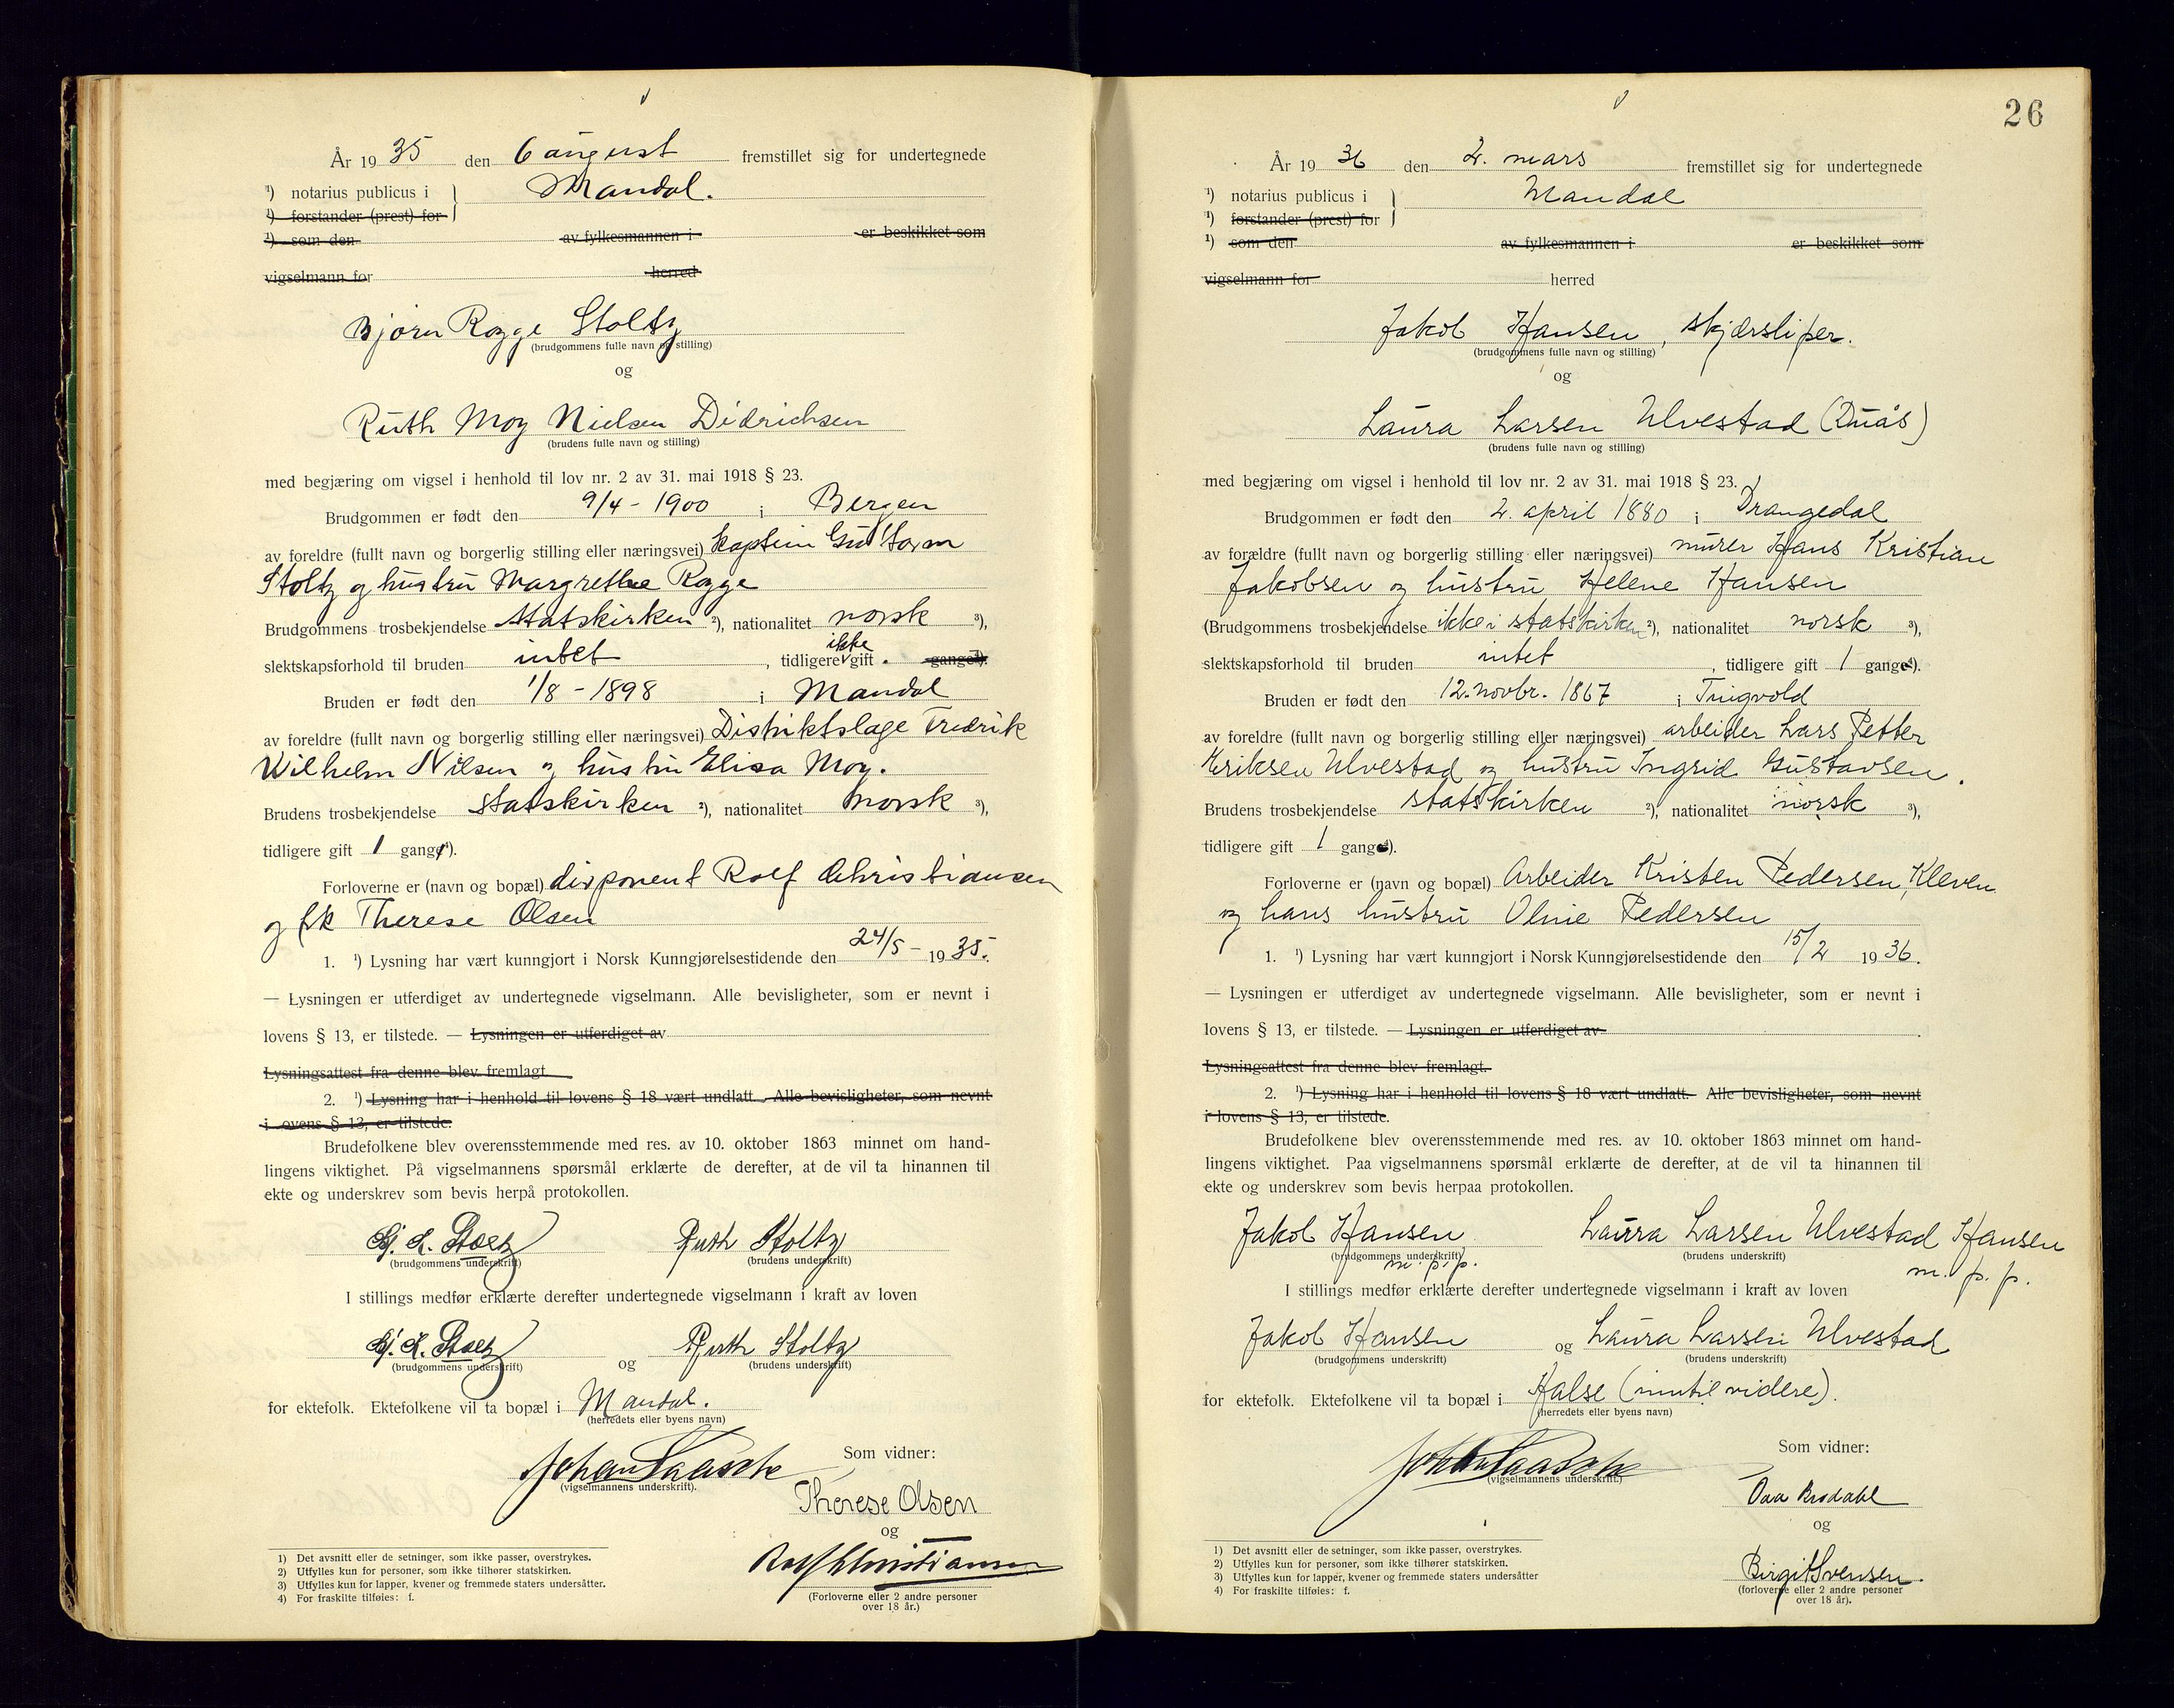 År 1935 den 6 august fremstillet sig for undertegnede
¹) notarius publicus i Mandal.
¹) forstander (prest) for
¹) som den av fylkesmannen i er beskikket som
vigselmann for herred
Bjørn Rogge Stoltz
(brudgommens fulle navn og stilling)
og
Ruth Moy Nielsen Didrichsen
(brudens fulle navn og stilling)
med begjæring om vigsel i henhold til lov nr. 2 av 31. mai 1918 § 23.
Brudgommen er født den 9/4 - 1900 i Bergen
av foreldre (fullt navn og borgerlig stilling eller næringsvei) kaptein Gustav
Stoltz og hustru Margrethe Rogge
Brudgommens trosbekjendelse Statskirken ²), nationalitet norsk ³),
slektskapsforhold til bruden intet, tidligere ikke gift. gange⁴).
Bruden er født den 1/8 - 1898 i Mandal
av foreldre (fullt navn og borgerlig stilling eller næringsvei) Distriktslæge Fredrik
Wilhelm Nilsen og hustru Elisa Moy.
Brudens trosbekjendelse statskirken ²), nationalitet norsk ³),
tidligere gift 1 gange⁴).
Forloverne er (navn og bopæl) disponent Rolf Christiansen
og frk Therese Olsen
1. ¹) Lysning har vært kunngjort i Norsk Kunngjørelsestidende den 24/5 - 1935.
— Lysningen er utferdiget av undertegnede vigselmann. Alle bevisligheter, som er nevnt i
lovens § 13, er tilstede. — Lysningen er utferdiget av
Lysningsattest fra denne blev fremlagt
2. ¹) Lysning har i henhold til lovens § 18 vært undlatt. Alle bevisligheter, som nevnt
i ovens § 13, er tilstede.
Brudefolkene blev overensstemmende med res. av 10. oktober 1863 minnet om hand-
lingens viktighet. På vigselmannens spørsmål erklærte de derefter, at de vil ta hinannen til
ekte og underskrev som bevis herpå protokollen.
Stoltz Ruth Stoltz
(brudgommens underskrift) (brudens underskrift)
I stillings medfør erklærte derefter undertegnede vigselmann i kraft av loven
Stoltz og Ruth Stoltz
(brudgommens underskrift) (brudens underskrift)
for ektefolk. Ektefolkene vil ta bopæl i Mandal.
(herredets eller byens navn)
Johan Som vidner:
(vigselmannens underskrift).
Therese Olsen
og
Rolf Christiansen
(Forloverne eller 2 andre personer
over 18 år.)
1) Det avsnitt eller de setninger, som ikke passer, overstrykes.
2) Utfylles kun for personer, som ikke tilhører statskirken.
3) Utfylles kun for lapper, kvener og fremmede staters undersåtter.
4) For fraskilte tilføies: f.
26
År 1936 den 2. mars fremstillet sig for undertegnede
¹) notarius publicus i Mandal
¹) forstander (prest) for
¹) som den av fylkesmannen i er beskikket som
vigselmann for herred
Jakob Hansen, skjærsliper.
(brudgommens fulle navn og stilling)
og
Laura Larsen Ulvestad
(brudens fulle navn og stilling)
med begjæring om vigsel i henhold til lov nr. 2 av 31. mai 1918 § 23.
Brudgommen er født den 2. april 1880 i Drangedal
av forældre (fullt navn og borgerlig stilling eller næringsvei) murer Hans Kristian
Jakobsen og hustru Helene Hansen
(Brudgommens trosbekjendelse ikke i statskirken ²), nationalitet norsk ³),
slektskapsforhold til bruden intet, tidligere gift 1 gange⁴).
Bruden er født den 12. novbr. 1867 i Tingvold
av foreldre (fullt navn og borgerlig stilling eller næringsvei) arbeider Lars Petter
Eriksen Ulvestad og hustru Ingrid Gustavsen.
Brudens trosbekjendelse statskirken ²), nationalitet norsk ³),
tidligere gift 1 gange⁴).
Forloverne er (navn og bopæl) Arbeider Kristen Pedersen, Kleven
og hans hustru Oline Pedersen
1. ¹) Lysning har vært kunngjort i Norsk Kunngjørelsestidende den 15/2 1936.
— Lysningen er utferdiget av undertegnede vigselmann. Alle bevisligheter, som er nevnt i
lovens § 13, er tilstede. — Lysningen er utferdiget av
Lysningsattest fra denne blev fremlagt.
2. ¹) Lysning har i henhold til lovens § 18 vært undlatt. Alle bevisligheter, som nevnt
i lovens § 13, er tilstede.
Brudefolkene blev overensstemmende med res. av 10. oktober 1863 minnet om hand-
lingens viktighet. Paa vigselmannens spørsmål erklærte de derefter, at de vil ta hinannen til
ekte og underskrev som bevis herpaa protokollen.
Jakob Hansen Laura Larsen Ulvestad Hansen
(brudgommens underskrift) (brudens underskrift)
m. p. p. m. p. p.
I stillings medfør erklærte derefter undertegnede vigselmann i kraft av loven
Jakob Hansen og Laura Larsen Ulvestad
(brudgommens underskrift) (brudens underskrift)
for ektefolk. Ektefolkene vil ta bopæl i Halse (inntil videre).
(herredets eller byens navn)
Johan Som vidner:
(vigselmannens underskrift.)
og
Birgit Svensen.
(forloverne eller 2 andre personer
over 18 år).
1) Det avsnitt eller de setninger, som ikke passer, overstrykes.
2) Utfylles kun for personer, som ikke tilhører statskirken.
3) Utfylles kun for lapper, kvener og fremmede staters undersåtter
4) For fraskilte tilføies: f.